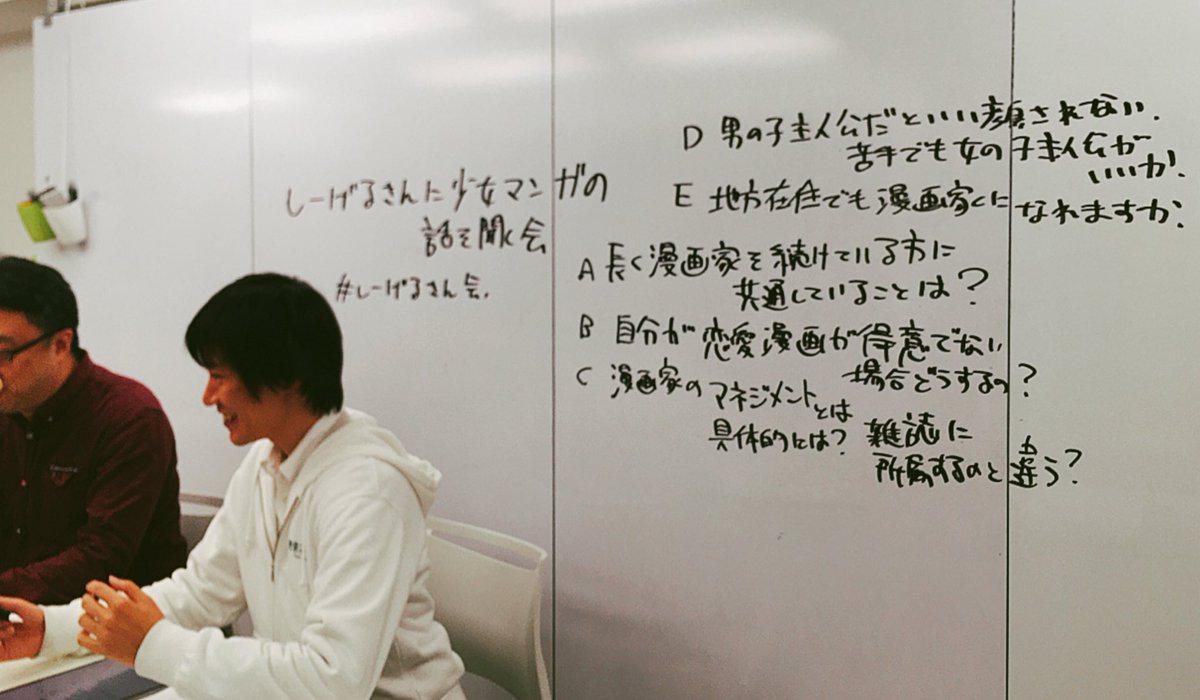 しーげるさんに少女マンガの
話を聞く会
#しーげるさん会.
D 男の子主人公だといい顔されない.
苦手でも女の子主人公が
いいか.
E 地方在住でも漫画家に
なれますか?
A 長く漫画家を続けている方に
共通していることは?
B 自分が恋愛漫画が得意でない
場合どうするの?
C 漫画家のマネジメントとは
具体的には?
雑誌に
所属するのと違う?